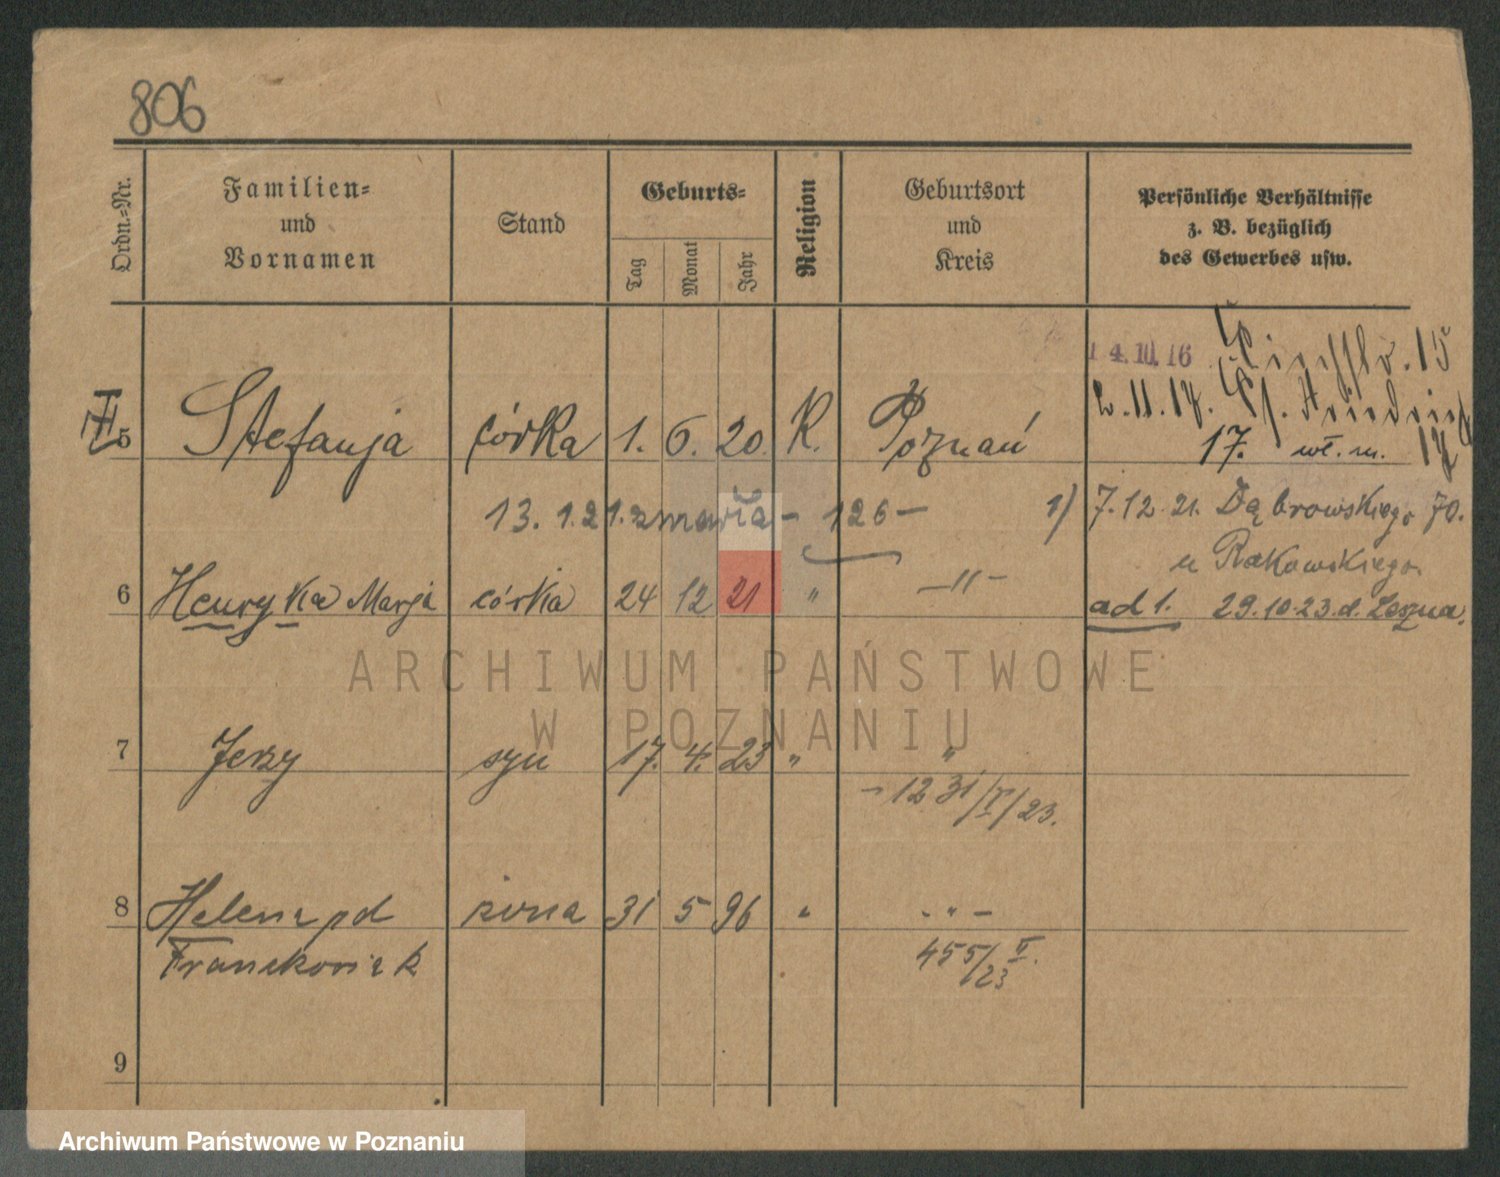 806
Ordn.-Nr.
Familien-
und
Vornamen
Stand
Geburts-
Tag
Monat
Jahr
Religion
Geburtsort
und
Kreis
Persönliche Verhältnisse
z. B. bezüglich
des Gewerbes usw.
4.10.16 15
2.11.17.
17. wł. m.
5 Stefanja córka 1. 6. 20. K. Poznań
13. 1. 21. zmarła - 126 - 1) 7.12.21. Dąbrowskiego 70.
u Rakowskiego.
6 Henryka Marja córka 24 12. 21 " -"-
ad 1. 29.10.23. d. Leszna.
ARCHIWUM PAŃSTWOWE
W POZNANIU
7 Jerzy syn 17. 4. 23 " "
- 12 31/V/23.
8 Helena pd żona 31 5 96 " - " -
Franckowiak 455/II.
23
9
Archiwum Państwowe w Poznaniu